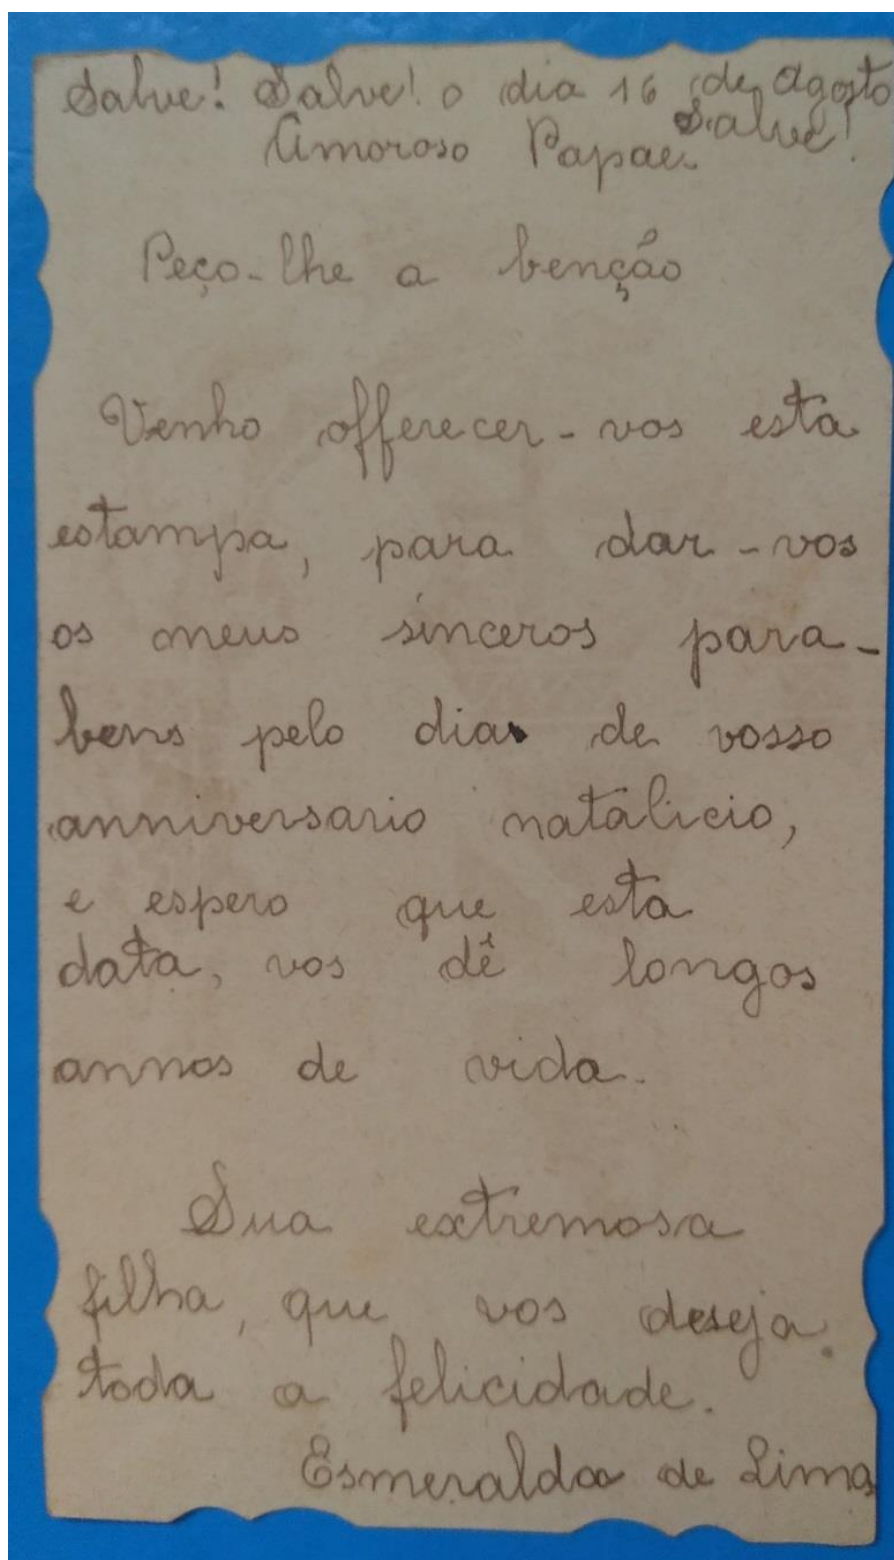 Salve! Salve! o dia 16 de Agosto
Salve!
Amoroso Papae
Peço-lhe a benção
Venho offerecer-vos esta
estampa, para dar-vos
os meus sinceros para-
bens pelo dia de vosso
anniversario natalicio,
e espero que esta
data, vos dê longos
annos de vida.
Sua extremosa
filha, que vos deseja
toda a felicidade.
Esmeralda de Lima